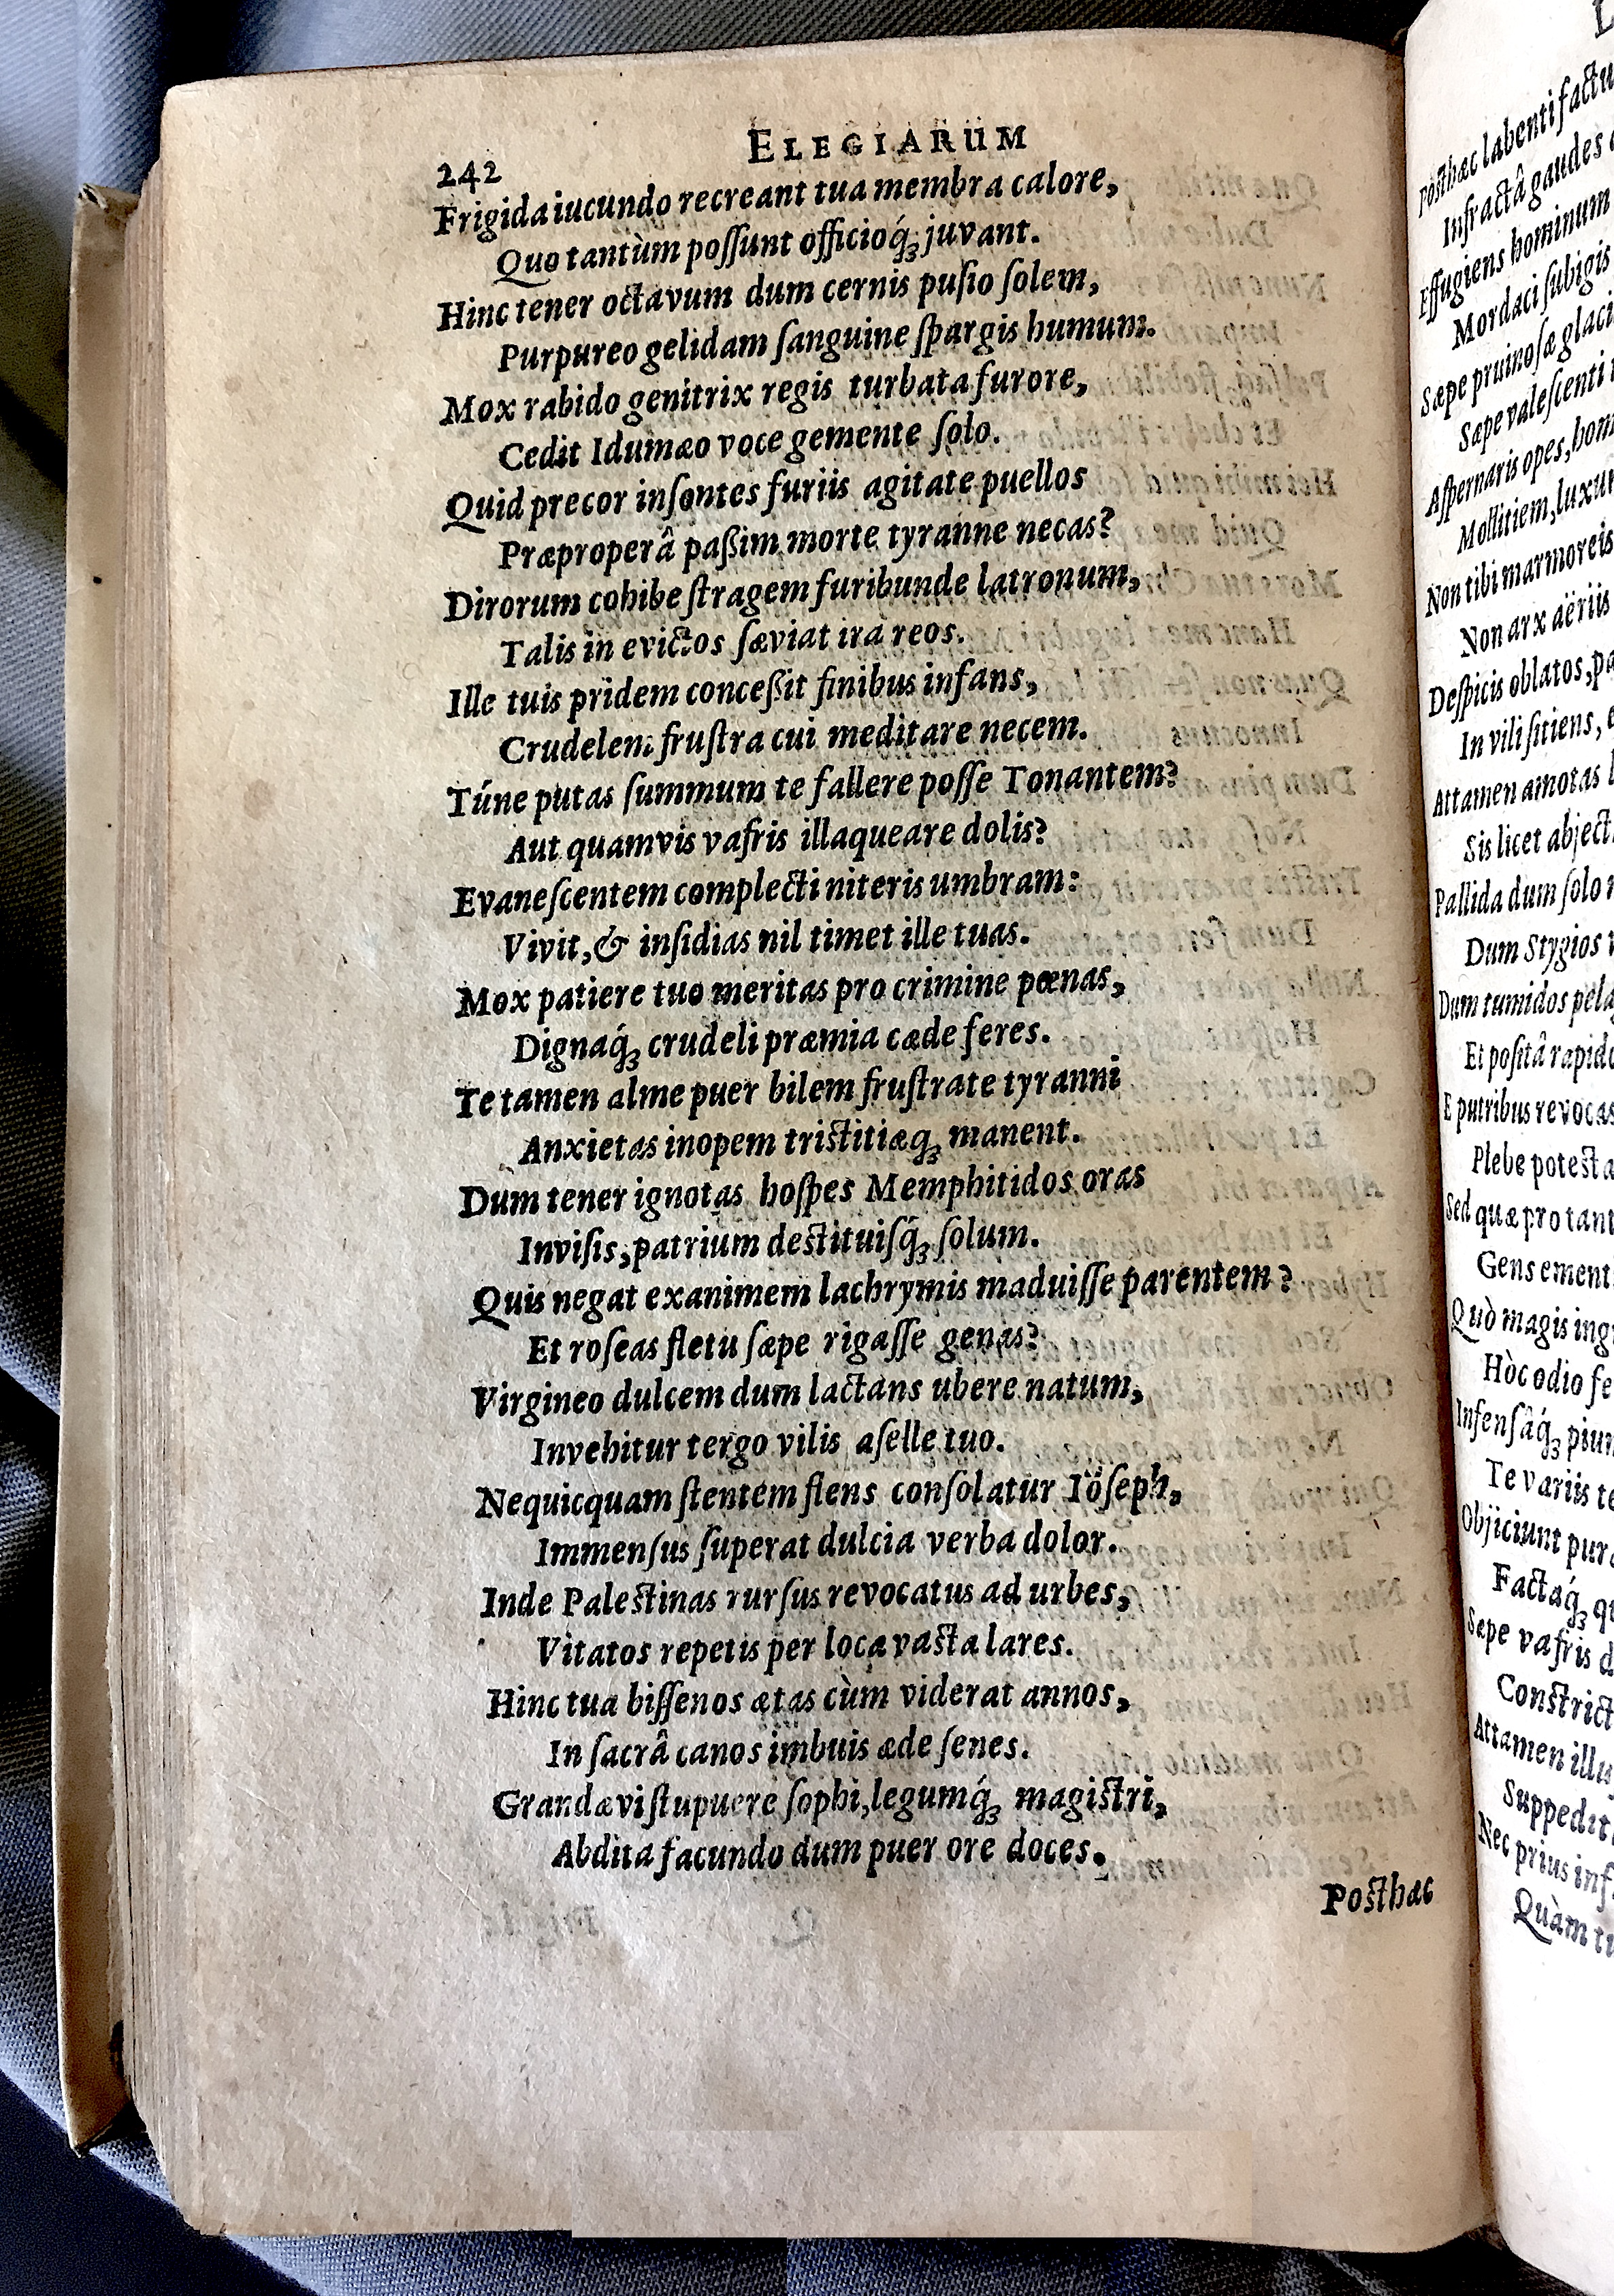 ELEGIARUM
242
Frigida iucundo recreant tua membra calore,
Quo tantùm poſſunt officioq́ꝫ juvant.
Hinc tener octavum dum cernis puſio ſolem,
Purpureo gelidam ſanguine ſpargis humum.
Mox rabido genitrix regis turbata furore,
Cedit Idumæo voce gemente ſolo.
Quid precor inſontes furiis agitate puellos
Præproperâ paßim morte tyranne necas?
Dirorum cohibe ſtragem furibunde latronum,
Talis in evictos ſæviat ira reos.
Ille tuis pridem conceßit finibus infans,
Crudelem fruſtra cui meditare necem.
Túne putas ſummum te fallere poſſe Tonantem?
Aut quamvis vafris illaqueare dolis?
Evaneſcentem complecti niteris umbram:
Vivit, & inſidias nil timet ille tuas.
Mox patiere tuo meritas pro crimine pœnas,
Dignaq́ꝫ crudeli præmia cæde feres.
Te tamen alme puer bilem fruſtrate tyranni
Anxietas inopem triſtitiæqꝫ manent.
Dum tener ignotas hoſpes Memphitidos oras
Inviſis, patrium deſtituiſq́ꝫ ſolum.
Quis negat exanimem lachrymis maduiſſe parentem?
Et roſeas fletu ſæpe rigaſſe genas?
Virgineo dulcem dum lactans ubere natum,
Invehitur tergo vilis aſelle tuo.
Nequicquam ſtentem flens conſolatur Iöſeph,
Immenſus ſuperat dulcia verba dolor.
Inde Paleſtinas rurſus revocatus ad urbes,
Vitatos repetis per loca vaſta lares.
Hinc tua biſſenos ætas cùm viderat annos,
In ſacrâ canos imbuis æde ſenes.
Grandævi ſtupuere ſophi, legumq́ꝫ magiſtri,
Abdita facundo dum puer ore doces.
Poſthac
Poſthæc labenti factu
Infractâ gaudes
Effugiens hominum
Mordaci ſubigis
Sæpe pruinoſæ glaci
Sæpe valeſcenti
Aſpernaris opes, hom
Mollitiem, luxu
Non tibi marmoreis
Non arx aëriis
Deſpicis oblatos, pa
In vili ſitiens, e
Attamen amotas
Sis licet abject
Pallida dum ſolo
Dum Stygios
Dum tumidos pela
Et poſitâ rapido
E putribus revocas
Plebe poteſt a
Sed quæ pro tant
Gens ement
Quò magis ing
Hòc odio fe
Infenſâq́ꝫ piu
Te variis te
Objiciunt pur
Factaq́ꝫ qu
Sæpe vafris d
Conſtrict
Attamen illu
Suppedit
Nec prius inf
Quàm t